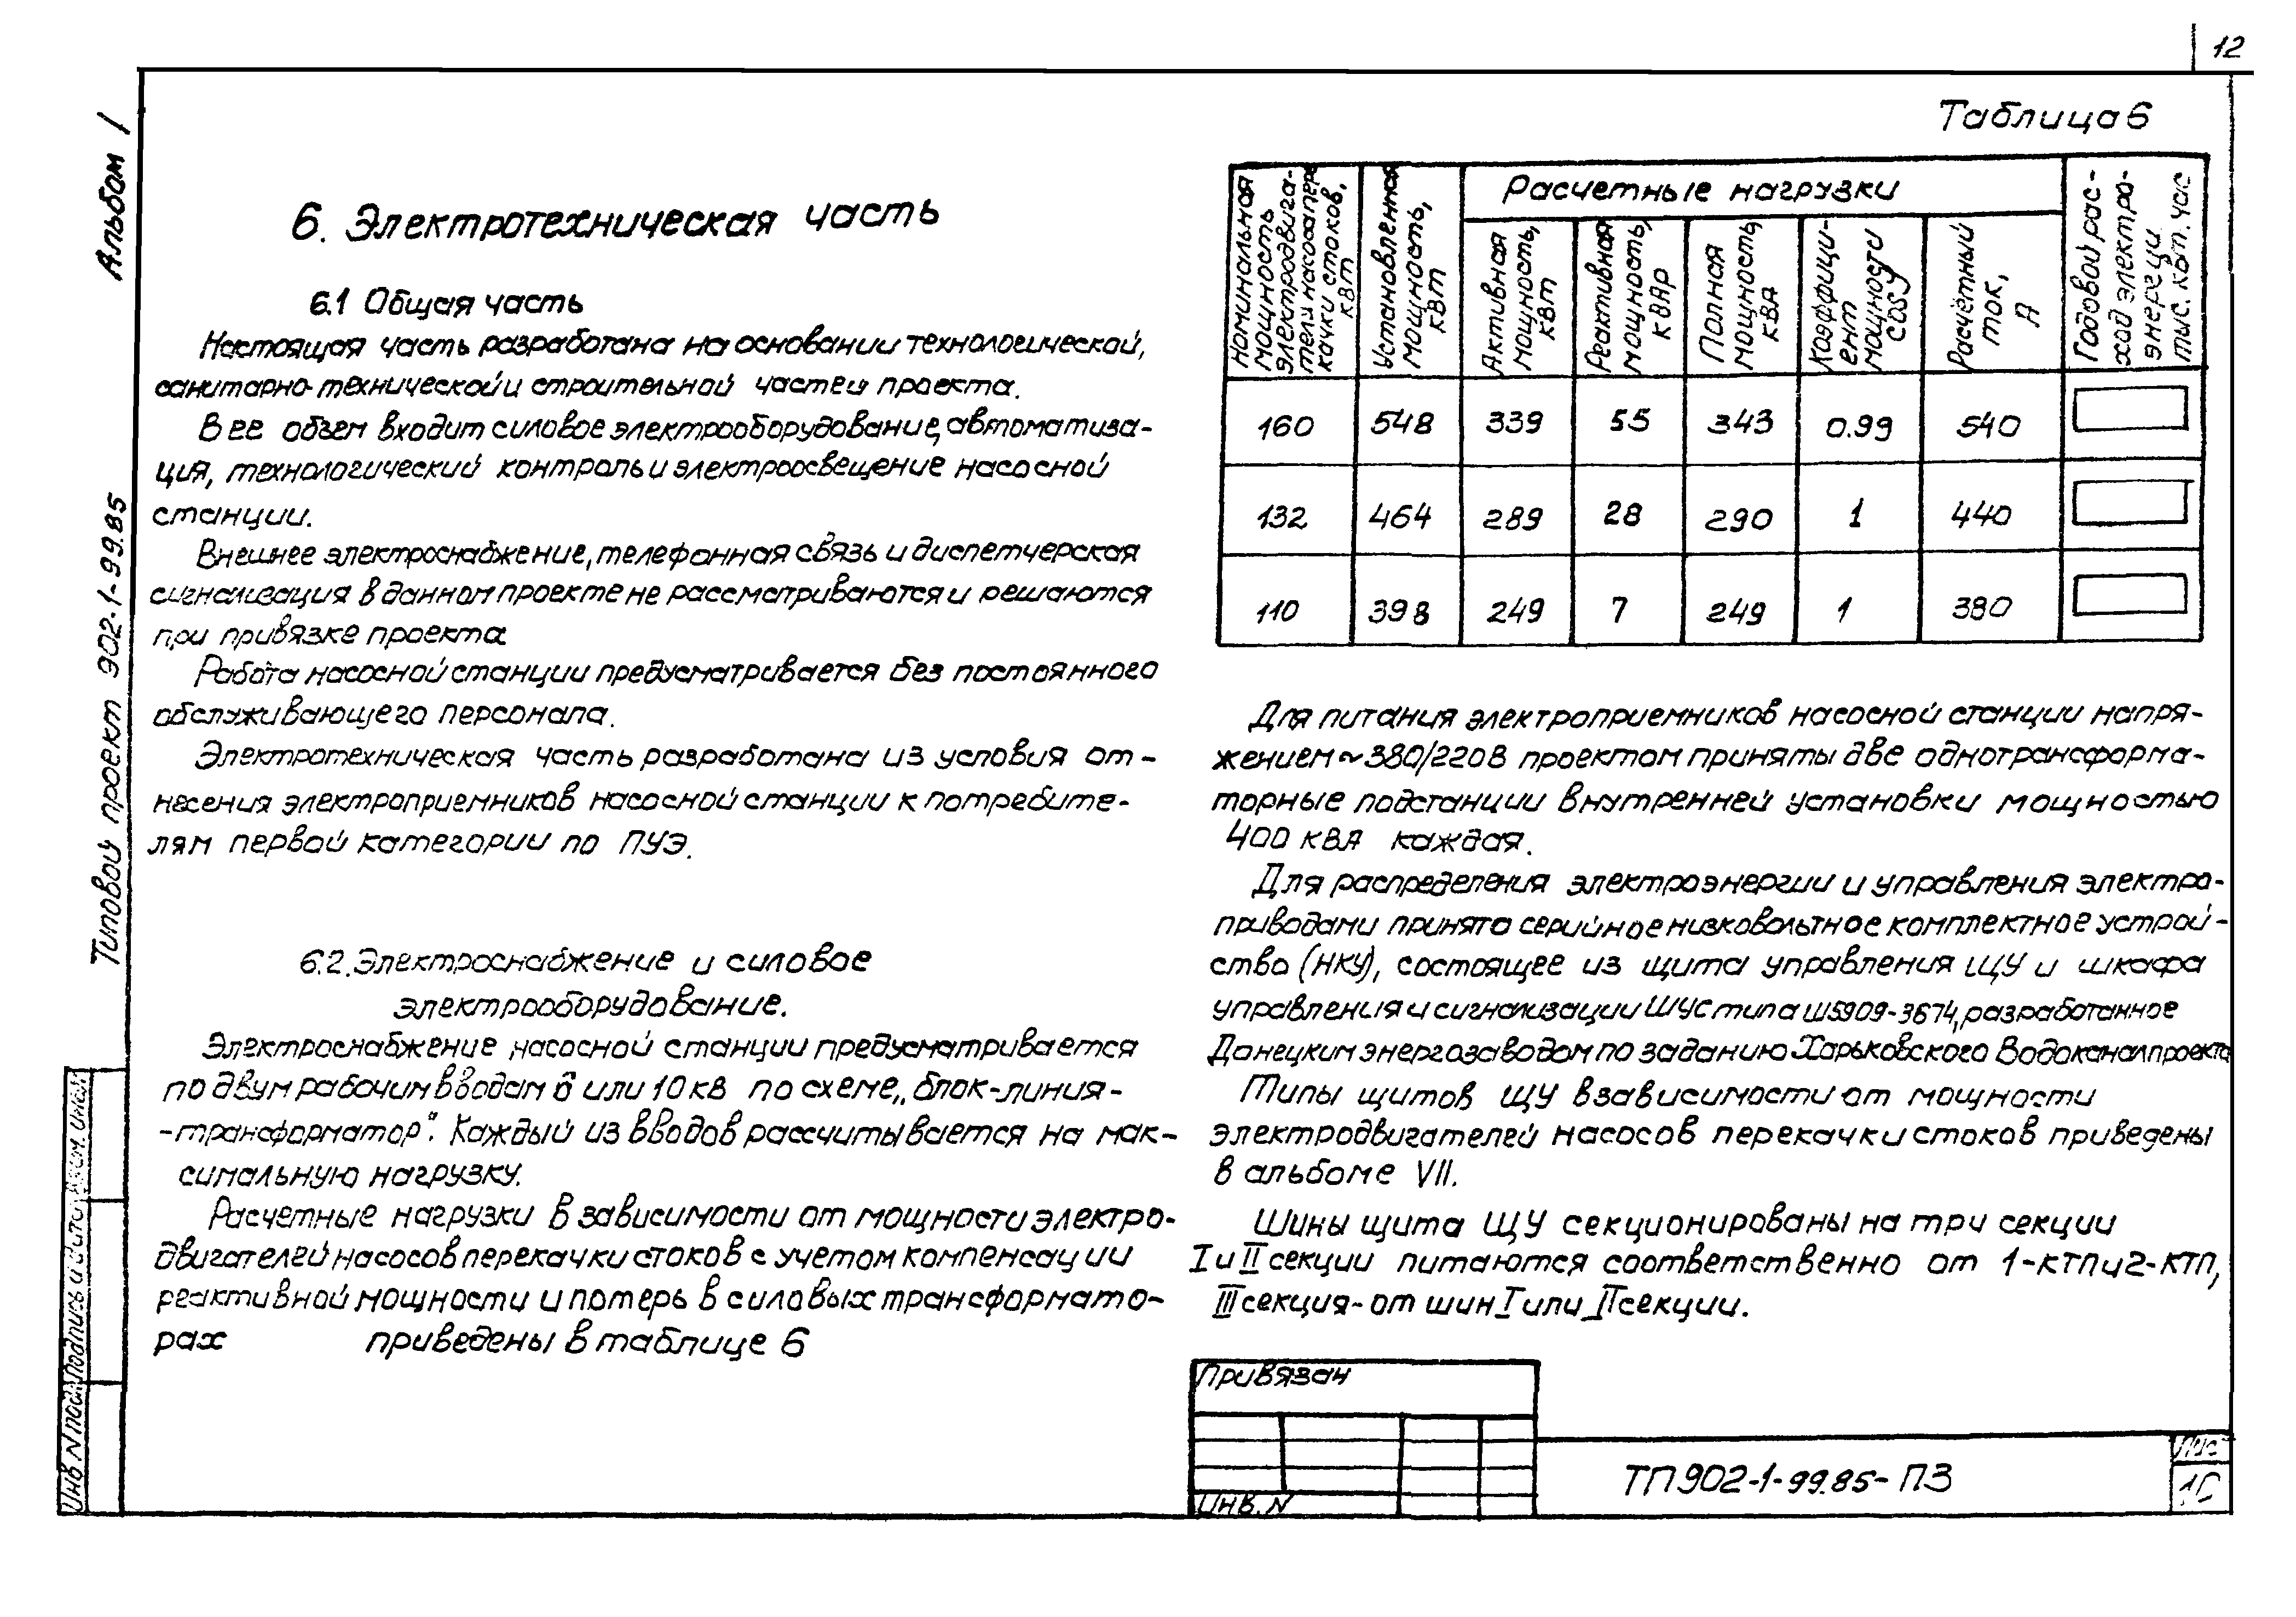 12
Альбом I
Типовой проект 902-1-99.85
6. Электротехническая часть
6.1 Общая часть
Настоящая часть разработана на основании технологической,
санитарно-технической и строительной частей проекта.
В ее объем входит силовое электрооборудование, автоматиза-
ция, технологический контроль и электроосвещение насосной
станции.
Внешнее электроснабжение, телефонная связь и диспетчерская
сигнализация в данном проекте не рассматриваются и решаются
при привязке проекта
Работа насосной станции предусматривается без постоянного
обслуживающего персонала.
Электротехническая часть разработана из условия от-
несения электроприемников насосной станции к потребите-
лям первой категории по ПУЭ.
6.2. Электроснабжение и силовое
электрооборудование.
Электроснабжение насосной станции предусматривается
по двум рабочим вводам 6 или 10 кв по схеме „блок-линия-
-трансформатор". Каждый из вводов рассчитывается на мак-
симальную нагрузку.
Расчетные нагрузки в зависимости от мощности электро-
двигателей насосов перекачки стоков с учетом компенсации
реактивной мощности и потерь в силовых трансформато-
рах приведены в таблице 6
Таблица 6
Номинальная мощность электродвига- теля насоса пере качки стоков, квт
Установленная мощность, квт
Расчетные нагрузки
Активная мощность, квт
Реактивная мощность, кВАр
Полная мощность, кВА
Коэффици- ент мощности cosγ
Расчётный ток, А
Годовой рас- ход электро- энергии тыс. квт. час
160 548 339 55 343 0.99 540
132 464 289 28 290 1 440
110 398 249 7 249 1 380
Для питания электроприемников насосной станции напря-
жением ~380/220В проектом приняты две однотрансформа-
торные подстанции внутренней установки мощностью
400 кВА каждая.
Для распределения электроэнергии и управления электро-
приводами принято серийное низковольтное комплектное устрой-
ство (НКУ), состоящее из щита управления ЩУ и шкафа
управления и сигнализации ШУС типа Ш5909-3674, разработанное
Донецким энергозаводом по заданию Харьковского Водоканалпроекта
Типы щитов ЩУ в зависимости от мощности
электродвигателей насосов перекачки стоков приведены
в альбоме VII.
Шины щита ЩУ секционированы на три секции
I и II секции питаются соответственно от 1-КТП и 2-КТП,
III секция - от шин I или II секции.
Привязан
Инв. N
ТП 902-1-99.85-ПЗ
Лис
Инв N подл
Подпись и дата
Взам. инв.